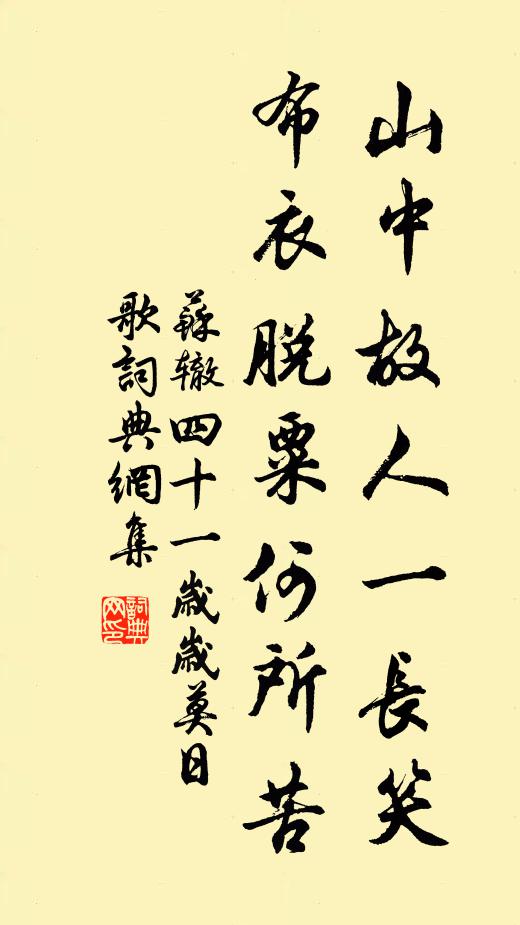 山中故人一長笑
布衣脱粟何所苦
蘇辙四十一歲歲莫日
歌詞典網集
詞典
网印